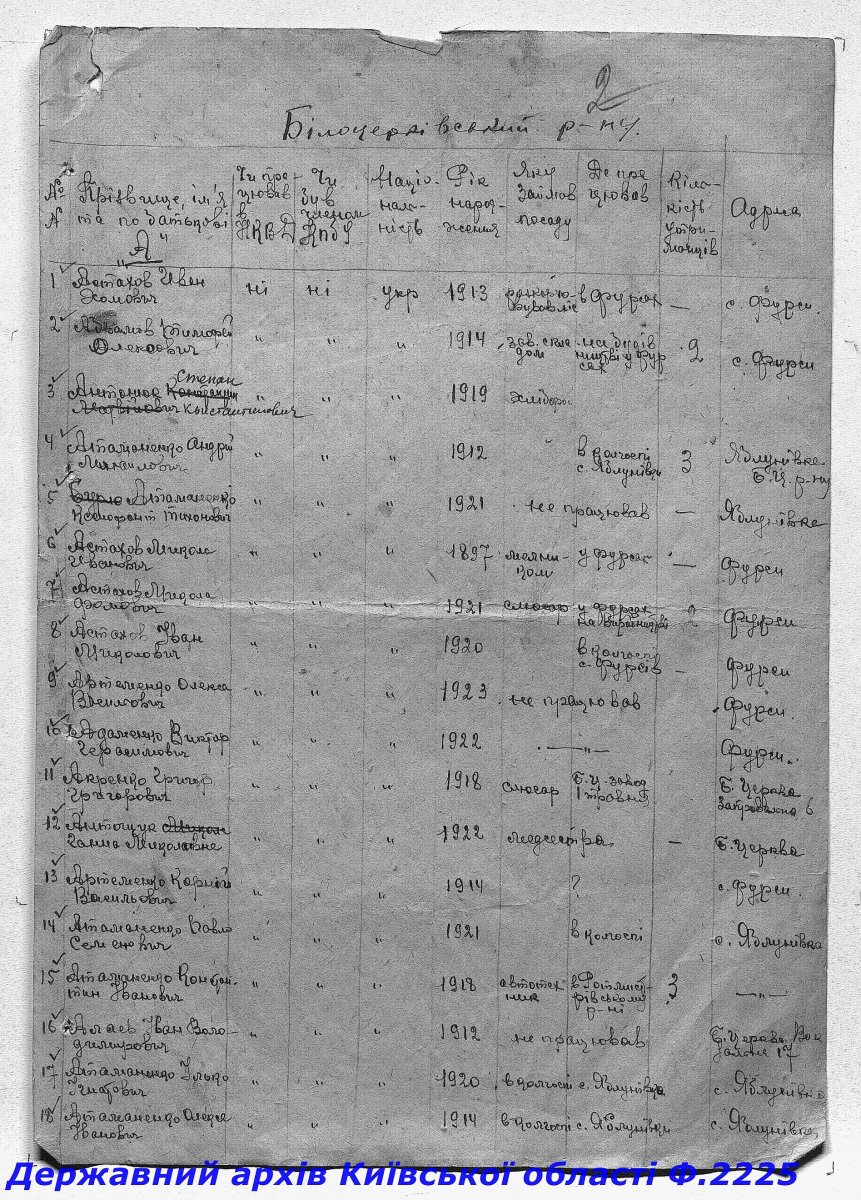 2
Білоцерківський р-ну.
№ Прізвище, ім'я та по батькові
Чи працював в НКВД
Чи був членом КпбУ
Націо-нальність
Рік народження
Яку займав посаду
Де працював
Кількість утриманців
Адреса
"А"
1 Астахов Иван Хомович ні ні укр 1913 в Фурсах — с. Фурси.
2 Абрамов Тимофей Олексович " " " 1914 зав. складом на будівництві у Фурсах 2 с. Фурси
3 Антонюк Степан Константинович " " " 1919 хлібороб
4 Атаманенко Андрій Михайлович " " " 1912 в колгоспі с. Яблунівка 3 Яблунівка Б.Ц. р-ну
5 Атаманенко Ксенофонт Тихонович " " " 1921 не працював — Яблунівка
6 Астахов Микола Иванович " " " 1897 у Фурсах — Фурси
7 Астахов Микола Фомович " " " 1921 слюсар у Фурсах 2 Фурси
8 Астахов Іван Миколович " " " 1920 в колгоспі с. Фурсів — Фурси
9 Артеменко Олекса Васильович " " " 1923 не працював Фурси.
10 Адаменко Виктор Герасимович " " " 1922 — " — Фурси.
11 Григор Григорович " " " 1918 слюсар Б.Ц. завод 1 травня Б. Церква 6
12 Антощук Ганна Миколаївна " " " 1922 медсестра — Б. Церква
13 Артеменко Корній Васильович " " " 1914 ? с. Фурси.
14 Атаманенко Павло Семенович " " " 1921 в колгоспі с. Яблунівка
15 Атаманенко Констян-тин Іванович " " " 1918 автотехник в Ротмистрівському р-ні 3 — " —
16 Іван Воло-димирович " " " 1912 не працював Б. Церква 17
17 Атаманенко Ілько Ігнатович " " " 1920 в колгоспі с. Яблунівка с. Яблунівка
18 Атаманенко Олекса Іванович " " " 1914 в колгоспі с. Яблунівки с. Яблунівка
Державний архів Київської області Ф.2225